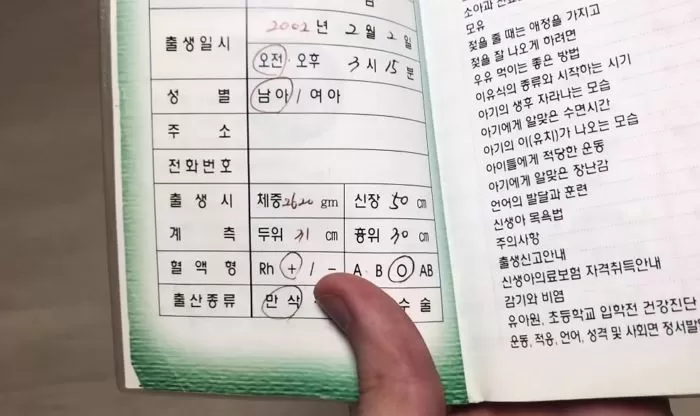 출생일시 2002년 2월 2일
오전·오후 3시 15분
성 별 남아 / 여아
주 소
전화번호
출 생 시 체중 2620 gm 신장 50 cm
계 측 두위 31 cm 흉위 30 cm
혈 액 형 Rh + / - A·B O AB
출산종류 만 삭 수 술
모유
젖을 줄 때는 애정을 가지고
젖을 잘 나오게 하려면
우유 먹이는 좋은 방법
이유식의 종류와 시작하는 시기
아기의 생후 자라나는 모습
아기에게 알맞은 수면시간
아기의 이(유치)가 나오는 모습
아이들에게 적당한 운동
아기에게 알맞은 장난감
언어의 발달과 훈련
신생아 목욕법
주의사항
출생신고안내
신생아의료보험 자격취득안내
감기와 비염
유아원, 초등학교 입학전 건강진단
운동, 적응, 언어, 성격 및 사회면 정서발